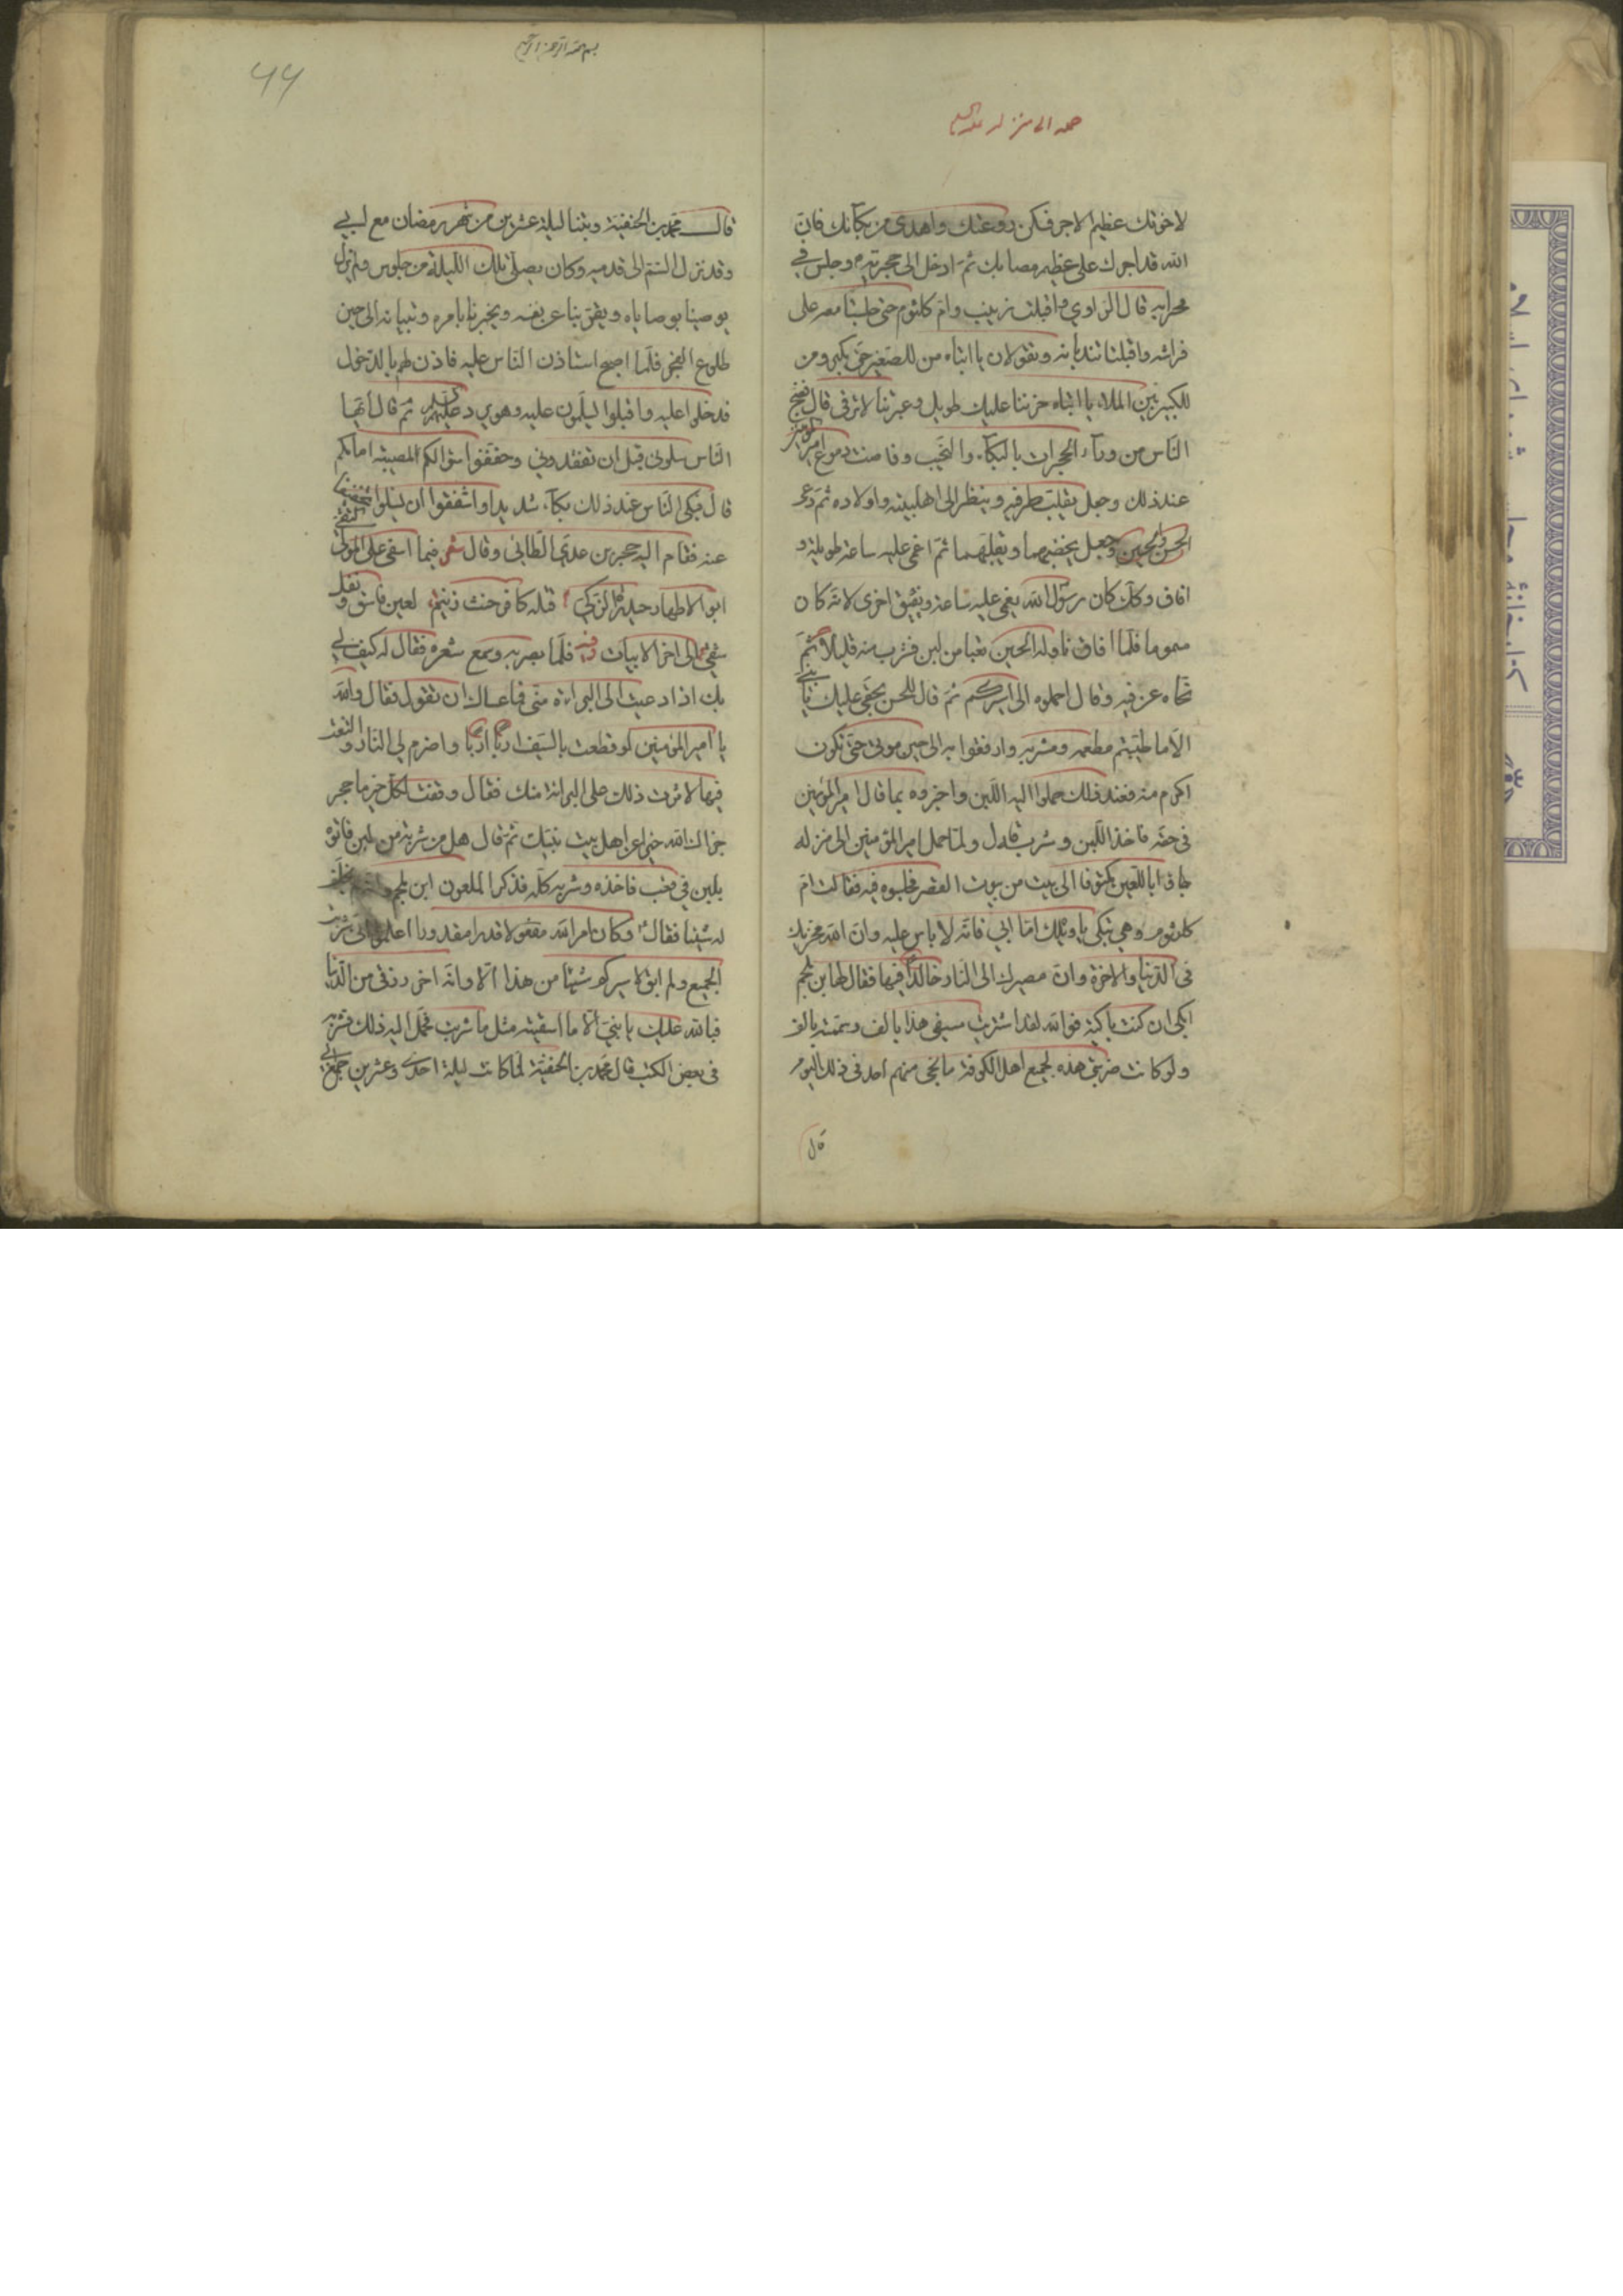 حمله الى منزله عليه السلم
لاخوتك عظيم الاجر فسكن روعتك واهدى من بكائك فان
الله قد اجرك على عظيم مصابك ثم ادخل الى حجرته وجلس في
محرابه قال الراوي واقبلت زينب وام كلثوم حتى جلستا معه على
فراشه واقبلتا تندبانه وتقولان يا ابتاه من للصغير حتى يكبر ومن
للكبير بين الملاء يا ابتاه حزننا عليك طويل وعبرتنا لا ترقى قال فضج
الناس من ورآء الحجرات بالبكآء والنحيب وفاضت دموع امير المؤمنين
عند ذلك وجعل يقلب طرفه وينظر الى اهلبيته واولاده ثم دعى
الحسن والحسين وجعل يحضنهما ويقبلهما ثم اغمى عليه ساعة طويلة و
افاق وكك كان رسول الله يغمى عليه ساعة ويفيق اخرى لانه كان
مسموما فلما افاق ناوله الحسن قعبا من لبن فشرب منه قليلا ثم
نحاه عن فيه وقال احملوه الى اسيركم ثم قال للحسن بحقى عليك يا بني
الا ما طيبتم مطعمه ومشربه وارفقوا به الى حين موتى حتى تكون
اكرم منه فعند ذلك حملوا اليه اللبن واخبروه بما قال امير المؤمنين
فى حقه فاخذ اللبن وشربه قال ولما حمل امير المؤمنين الى منزله
جاؤا باللعين مكتوفا الى بيت من بيوت القصر فحبسوه فيه فقالت ام
كلثوم وهي تبكى يا ويلك اما ابي فانه لا باس عليه وان الله مخزيك
فى الدنيا والاخرة وان مصيرك الى النار خالدا فيها فقال لها ابن ملجم
ابكى ان كنت باكية فوالله لقد اشتريت سيفى هذا بالف وسممته بالف
ولو كانت ضربتى هذه لجميع اهل الكوفة ما نجى منهم احد فى ذلك اليوم
قال
بسم الله الرحمن الرحيم
۶۶
قال محمد بن الحنفية وبتنا ليلة عشرين من شهر رمضان مع ابي
وقد نزل السم الى قدميه وكان يصلى تلك الليلة من جلوس ولم يزل
يوصينا بوصاياه ويعزينا عن نفسه ويخبرنا بامره وتبيانه الى حين
طلوع الفجر فلما اصبح استاذن الناس عليه فاذن لهم بالدخول
فدخلوا عليه واقبلوا يسلمون عليه وهو يرد عليهم السلام ثم قال ايها
الناس سلونى قبل ان تفقدوني وخففوا سؤالكم لمصيبة امامكم
قال فبكى الناس عند ذلك بكآء شديدا واشفقوا ان يسئلوا تخفيفا
عنه فقام اليه حجر بن عدي الطائي وقال شعر فيا اسفى على المولى التقى
ابو الاطهار حيدرة الزكي قتله كافر حنث زنيم لعين فاسق نغل
شقي الى اخر الابيات فلما بصر به وسمع شعره فقال له كيف لي
بك اذا دعيت الى البراءة منى فما عساك ان تقول فقال والله
يا امير المؤمنين لو قطعت بالسيف اربا اربا واضرم لي النار والقيت
فيها لاثرت ذلك على البرائة منك فقال وفقت لكل خير يا حجر
جزاك الله خيرا عن اهل بيت نبيك ثم قال هل من شربة من لبن فاتوه
بلبن في قعب فاخذه وشربه كله فذكر الملعون ابن ملجم وانه لم يخلف
له شيئا فقال وكان امر الله مفعولا قدرا مقدورا اعلموا انى شربت
الجميع ولم ابق لاسيركم شيئا من هذا الا وانه اخر رزقى من الدنيا
فبالله عليك يا بنى الا ما اسقيته مثل ما شربت فحمل اليه ذلك فشربه
فى بعض الكتب قال محمد بن الحنفية لما كانت ليلة احدى وعشرين جمع ابي